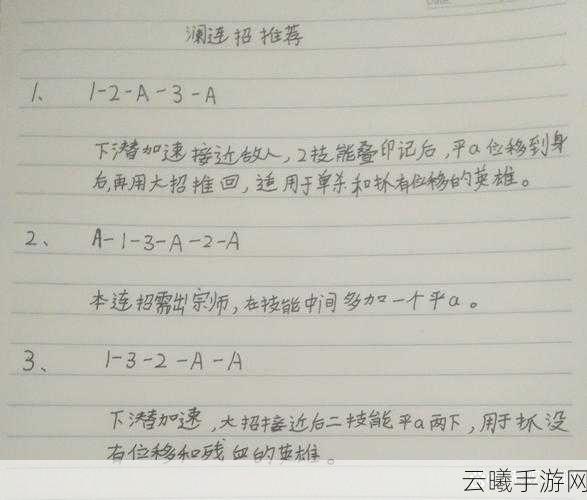 澜连招推荐
1、 1-2-A-3-A
下潜加速接近敌人，2技能叠印记后，平a位移到身
后,再用大招推回，适用于单杀和抓有位移的英雄。
2、 A-1-3-A-2-A
本连招需出宗师，在技能中间多加一个平a。
3、 1-3-2-A-A
下潜加速，大招接近后二技能平a两下，用于抓没
有位移和残血的英雄。
云曦手游网